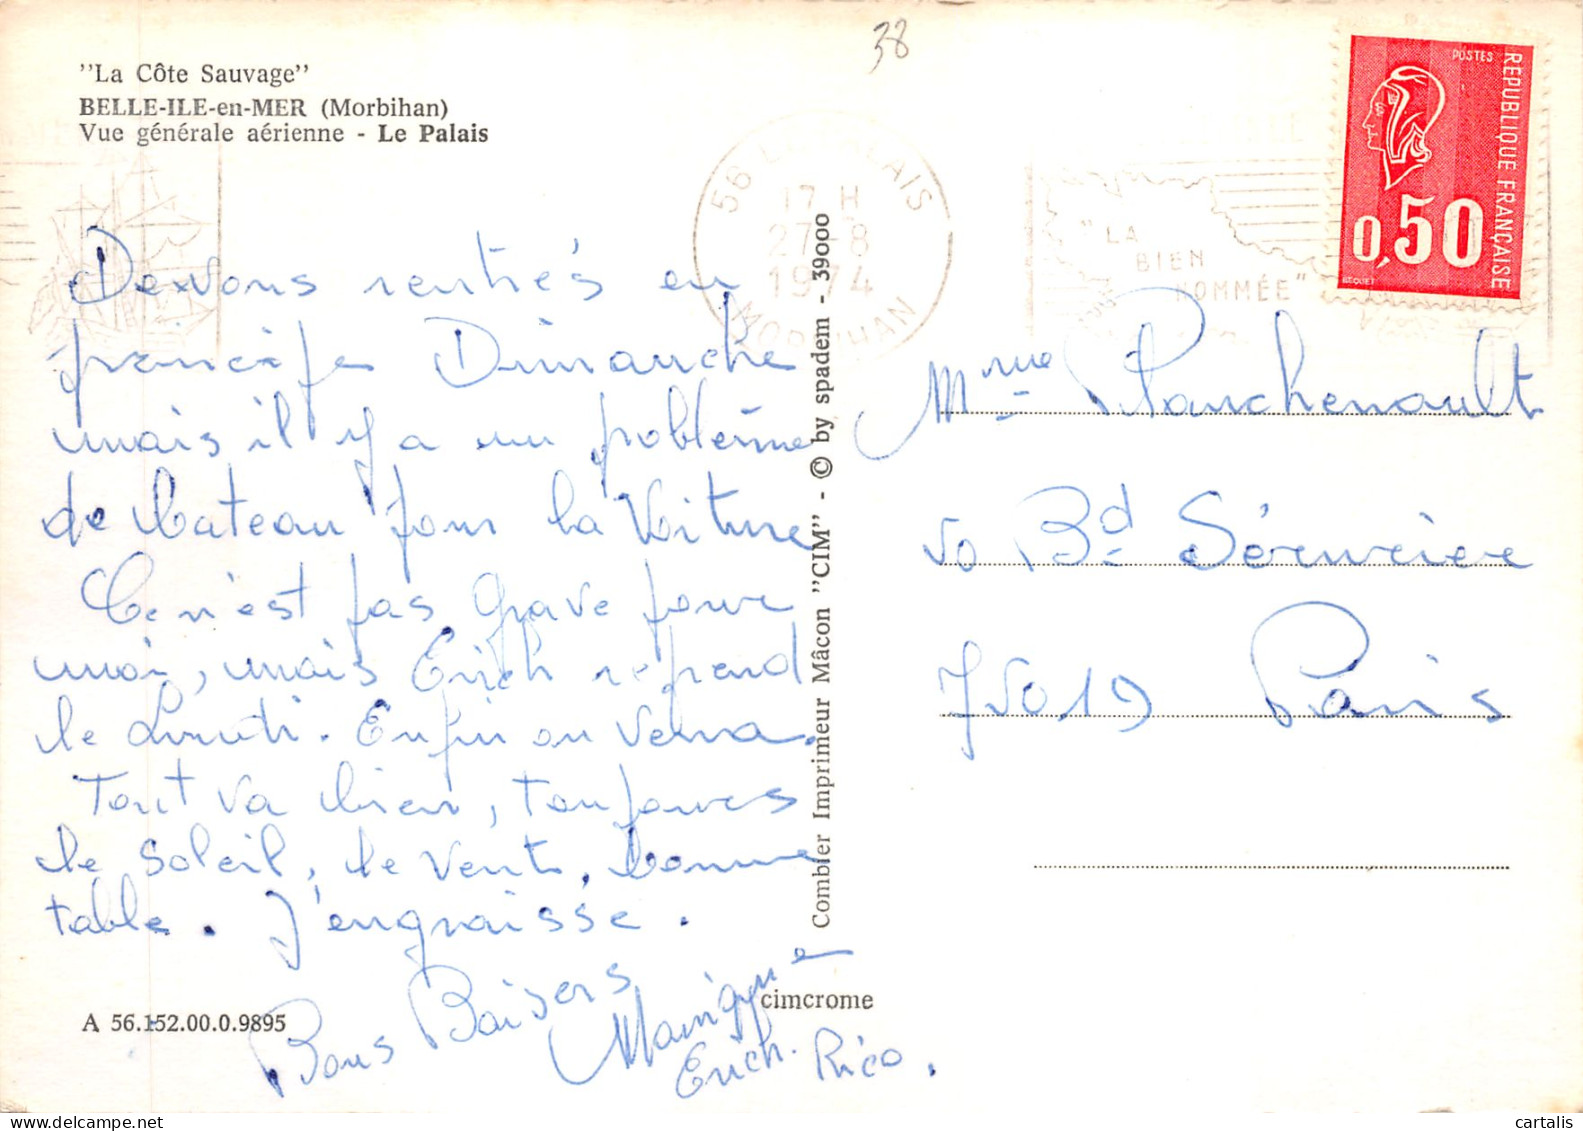 38
"La Côte Sauvage"
BELLE-ILE-en-MER (Morbihan)
Vue générale aérienne - Le Palais
POSTES
REPUBLIQUE FRANÇAISE
0,50
BEQUET
56 LE PALAIS
17 H
27-8
1974
MORBIHAN
"LA
BIEN
NOMMÉE"
Devons rentrés en
principe Dimanche
mais il y a un problème
de bateau pour la Voiture
Ce n'est pas grave pour
moi, mais Erich reprend
le Lundi. Enfin on verra.
Tout va bien, toujours
le soleil, le vent, bonne
table. J'engraisse.
Bons Baisers
Monique
Erich. Rico.
Combier Imprimeur Mâcon "CIM" - © by spadem - 39000
Mme Planchenault
50 Bd Sérurier
75019 Paris
A 56.152.00.0.9895
cimcrome
cartalis